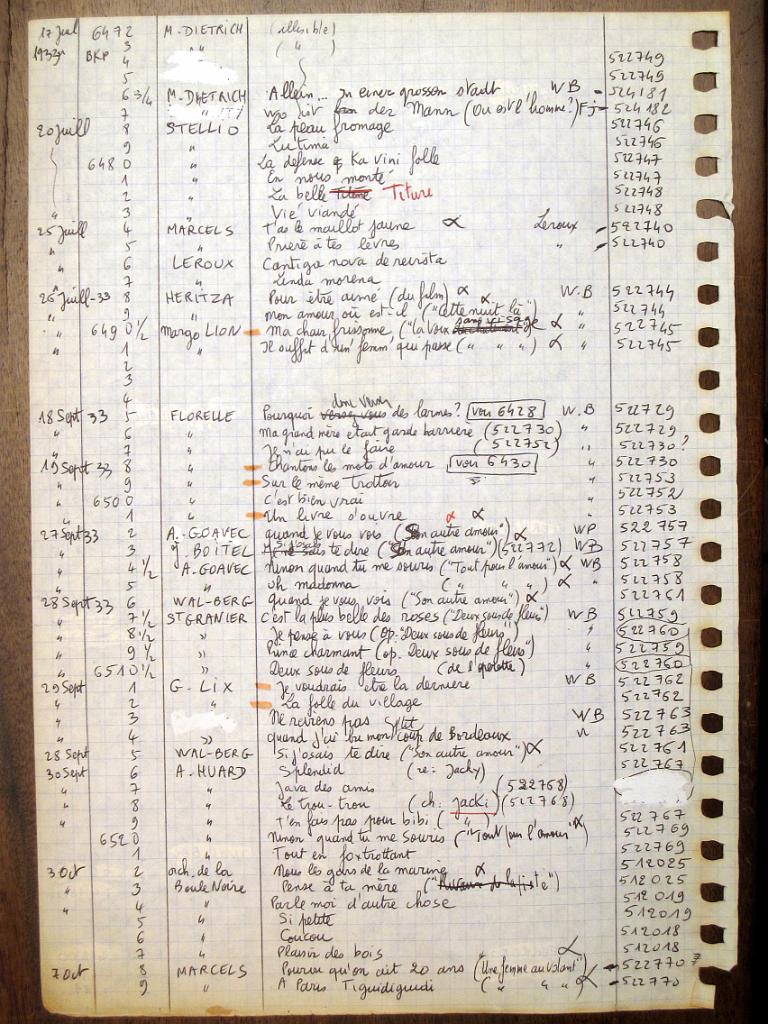 17 Juil 6472 M. DIETRICH (illisible)
1933 BKP 3 " ( " )
4 522749
5 522749
6 3/4 M. DIETRICH Allein... In einer grossen stadt WB - 524181
7 " wo ist der Mann (Ou est l'homme?) Fj - 524182
20 juill 8 STELLIO La peau fromage 522746
9 " Lutima 522746
6480 " La defense Ka vini folle 522747
1 " En nous monté 522747
2 " La belle Titine Titure 522748
" 3 " Vié viandé 522748
25 Juill 4 MARCELS T'as le maillot jaune α Leroux - 522740
" 5 " Prière à tes lèvres " - 522740
" 6 LEROUX Cantiga nova de revista
" 7 " Linda morena
26 Juill-33 8 HERITZA Pour être aimé (du film) α W.B 522744
" 9 " mon amour, où est-il ("Cette nuit là") α 522744
" 6490 1/2 Margo LION - Ma chair frissonne ("la voix sans visage α " 522745
" 1 " Il suffit d'un' femm' qui passe ( " " " ) α " 522745
2
3
4
18 Sept 33 5 FLORELLE Pourquoi versez vous donc verser des larmes? voir 6428 W.B 522729
" 6 " Ma grand mère etait garde barrière (522730) " 522729
" 7 " Je n'ai pu le faire (522752) " 522730?
19 Sept 33 8 " - Chantons les mots d'amour voir 6430 " 522730
" 9 " - Sur le même trottoir " 522753
" 6500 " C'est bien vrai " 522752
" 1 " - Un livre s'ouvre α α " 522753
27 Sept 33 2 A. GOAVEC quand je vous vois (Son autre amour") α WP 522757
" 3 J. BOITEL Si j'osais te dire (Son autre amour") (522772) WB 522757
" 4 1/2 A. GOAVEC Ninon quand tu me souris ("Tout pour l'amour") α WB 522758
" 5 " Oh madonna ( " " " ) α " 522758
28 Sept 33 6 WAL-BERG quand je vous vois ("Son autre amour") α 522761
" 7 1/2 ST GRANIER C'est la plus belle des roses ("Deux sous de fleurs") WB 522759
" 8 1/2 " Je pense à vous (op. "Deux sous de fleurs") " 522760
" 9 1/2 " Prince charmant (op. Deux sous de fleurs") " 522759
" 6510 1/2 " Deux sous de fleurs (de l'opérette) " 522760
29 Sept 1 G. LIX - Je voudrais etre la derniere WB 522762
" 2 " - La folle du village 522762
" 3 Ne reviens pas WB 522763
" 4 " quand j'ai bu mon p'tit coup de Bordeaux " 522763
28 Sept 5 WAL-BERG Si j'osais te dire ("Son autre amour") α 522761
30 Sept 6 A. HUARD Splendid (re: Jacky) 522767
" 7 " Java des amis (522768)
" 8 " Le trou-trou (ch: Jacki) (522768)
" 9 " T'en fais pas pour bibi ( " ) 522767
6520 " Ninon quand tu me souris ("Tout pour l'amour" α) 522769
1 " Tout en foxtrottant 522769
3 Oct 2 orch. de la Nous les gars de la marine α 512025
" 3 Boule Noire Pense à ta mère 512025
" 4 " Parle moi d'autre chose 512019
5 " Si petite 512019
6 " Coucou 512018
7 " Plaisir des bois 512018
7 Oct 8 MARCELS Pourvu qu'on ait 20 ans ("Une femme au volant") α - 522770 ?
9 " A Paris Tiguidiguidi ( " " " ) α - 522770